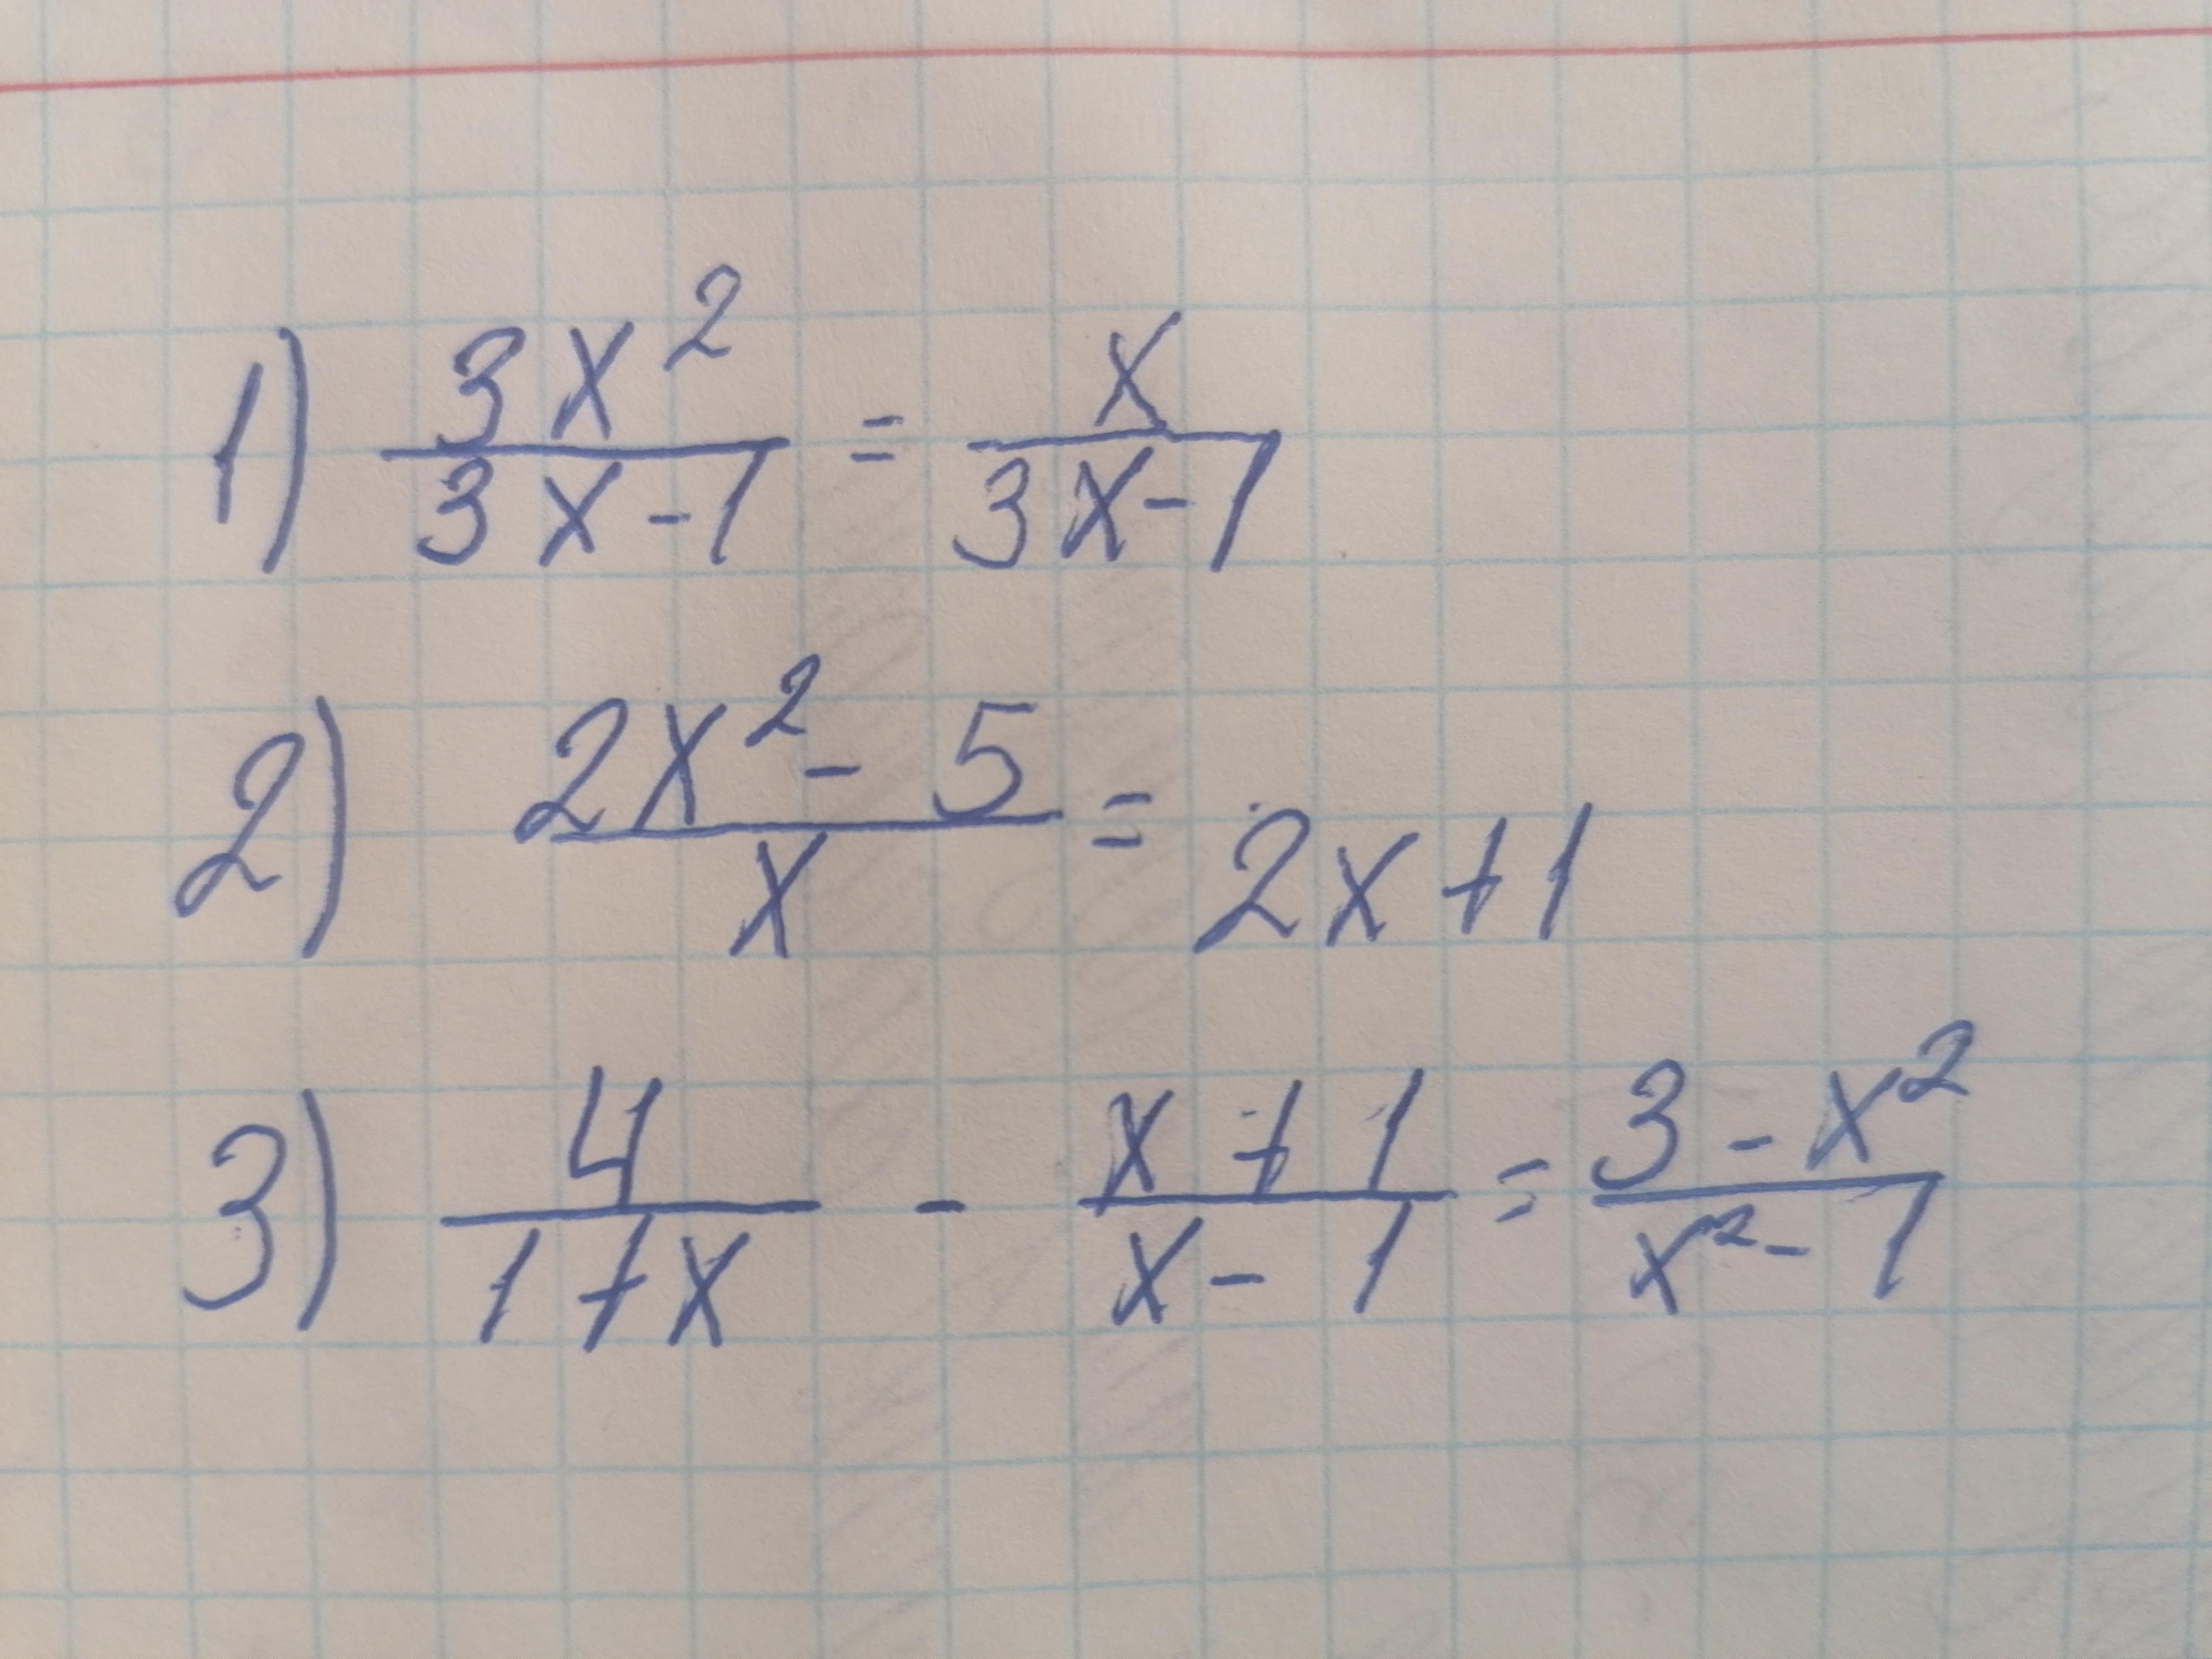 1) \frac{3x^2}{3x-1} = \frac{x}{3x-1}
2) \frac{2x^2-5}{x} = 2x+1
3) \frac{4}{1+x} - \frac{x+1}{x-1} = \frac{3-x^2}{x^2-1}